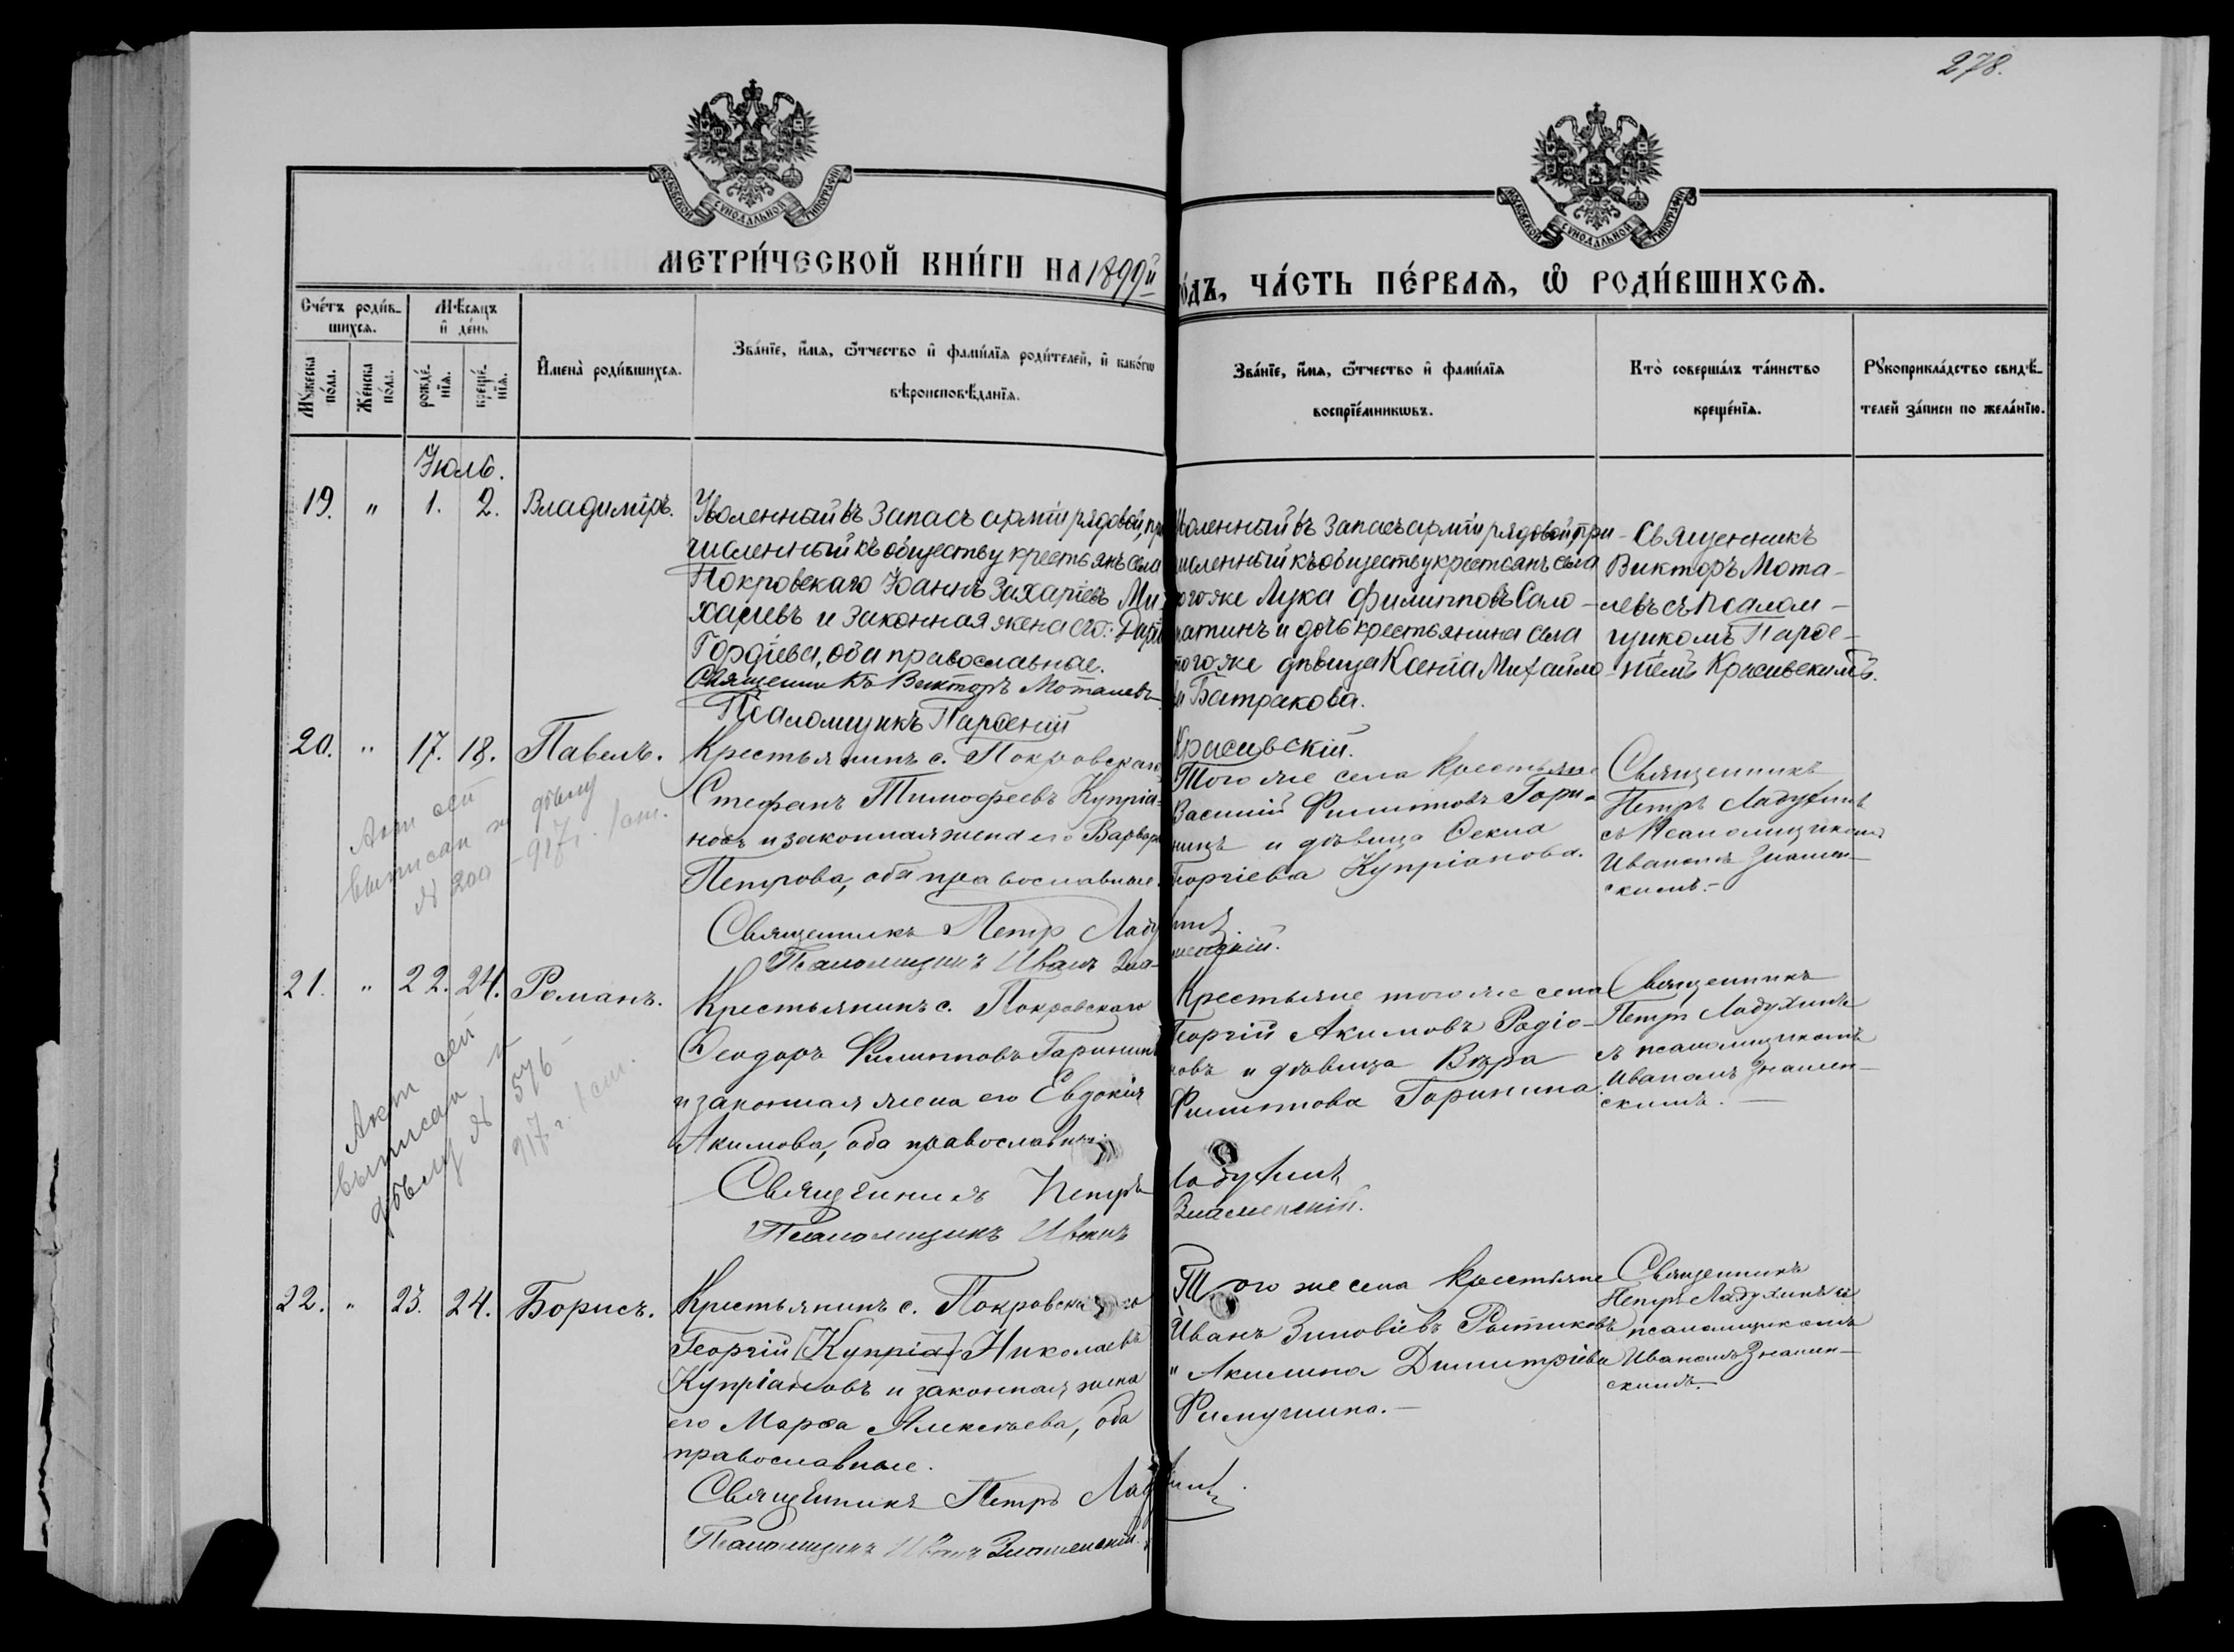 278.
МОСКОВСКОЙ СѴНОДАЛЬНОЙ ТИПОГРАФІИ
МОСКОВСКОЙ СѴНОДАЛЬНОЙ ТИПОГРАФІИ
МЕТРИ́ЧЕСКОЙ КНИ́ГИ НА 1899й
О́ДЪ, ЧА́СТЬ ПЕ́РВАѦ, Ѡ҆ РОДИ́ВШИХСѦ.
Сче́тъ роди́в-
шихсѧ.
Мѣ́сѧцъ
и҆ де́нь
Мꙋ́жеска
по́ла.
Же́нска
по́ла.
рожде́-
нїѧ.
креще́-
нїѧ.
И҆мена̀ роди́вшихсѧ.
Зва́нїе, и҆́мѧ, ѻ҆́тчество и҆ фами́лїѧ роди́телей, и҆ како́гѡ
вѣроисповѣ́данїѧ.
Зва́нїе, и҆́мѧ, ѻ҆́тчество и҆ фами́лїѧ
воспрїе́мникѡвъ.
Кто̀ соверша́лъ та́инство
креще́нїѧ.
Рꙋкоприкла́дство свидѣ́-
телей за́писи по жела́нїю.
Іюль.
19. " 1. 2. Владиміръ.
Уволенный въ запасъ арміи рядовой, при
численный къ обществу крестьянъ села
Покровскаго Іоаннъ Захаріевъ Ми-
харевъ и законная жена его
Гордіева, оба православные.
Священникъ Викторъ Моталевъ
Псаломщикъ Парѳеній
Красивскій.
воленный въ запасъ арміи рядовой, при-
численный къ обществу крестьянъ села
тогоже Лука Филипповъ Сало-
матинъ и дочь крестьянина села
тогоже дѣвица Ксенія Михайло
ва Батракова.
Священникъ
Викторъ Мота-
левъ съ псалом-
щикомъ Парѳе-
ніемъ Красивскимъ.
20. " 17. 18. Павелъ.
Акт сей
выписан по дѣлу
№ 200 - 917 г. /ст.
Крестьянинъ с. Покровскаго
Стефанъ Тимофеевъ Купріа-
новъ и законная жена его Варвара
Петрова, оба православные.
Священникъ Петръ Ладухинъ
Псаломщикъ Иванъ Знаменскій.
Того же села крестьяне
Василій Филипповъ Гори-
нинъ и дѣвица Ѳекла
Георгіева Купріанова.
Священникъ
Петръ Ладухинъ
съ псаломщикомъ
Иваномъ Знамен-
скимъ.-
21. " 22. 24. Романъ.
Акт сей
выписан по
дѣлу № 576-
917 г. /ст.
Крестьянинъ с. Покровскаго
Ѳеодоръ Филипповъ Горининъ
и законная жена его Евдокія
Акимова, оба православные.
Священникъ Петръ Ладухинъ
Псаломщикъ Иванъ Знаменскій.
Крестьяне того же села
Георгій Акимовъ Родіо-
новъ и дѣвица Вѣра
Филиппова Горинина.
Священникъ
Петръ Ладухинъ
съ псаломщикомъ
Иваномъ Знамен-
скимъ.-
22. " 23. 24. Борисъ.
Крестьянинъ с. Покровскаго
Георгій [Купріа] Николаевъ
Купріановъ и законная жена
его Марѳа Алексѣева, оба
православные.
Священникъ Петръ Ладухинъ.
Псаломщикъ Иванъ Знаменскій.
Того же села крестьяне
Иванъ Зиновіевъ
и Акилина Димитріева
Филмушина.-
Священникъ
Петръ Ладухинъ съ
псаломщикомъ
Иваномъ Знамен-
скимъ.-